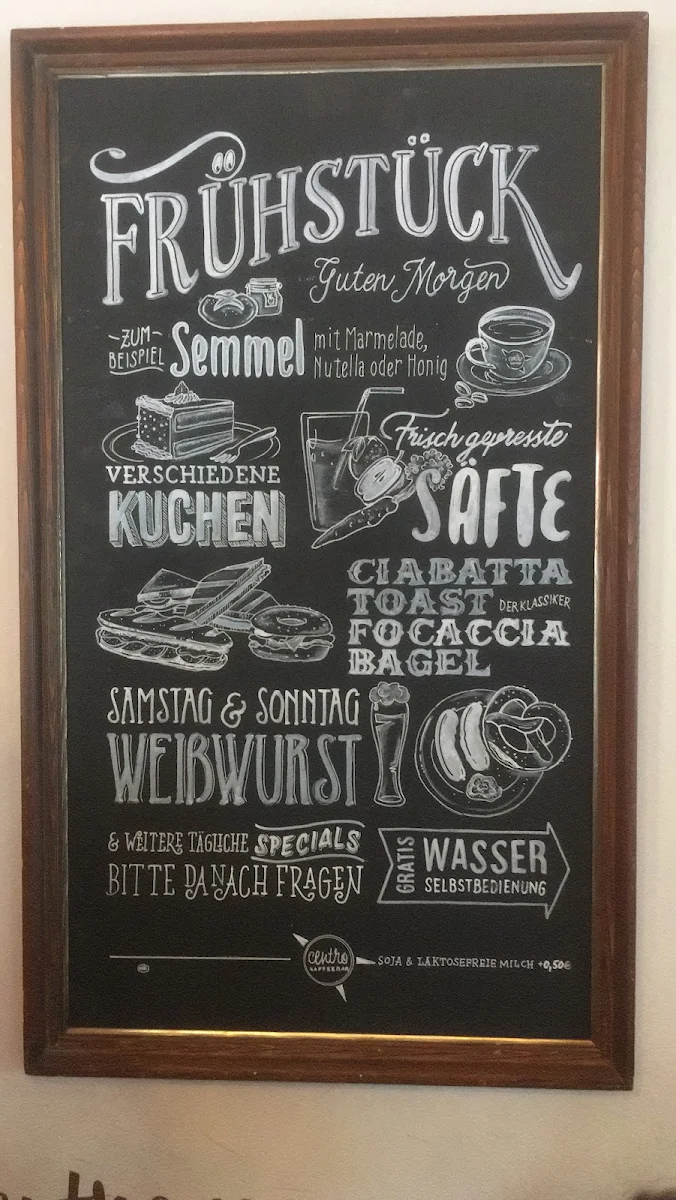 FRÜHSTÜCK
Guten Morgen
ZUM
BEISPIEL
Semmel
mit Marmelade,
Nutella oder Honig
VERSCHIEDENE
KUCHEN
Frisch gepresste
SÄFTE
CIABATTA
TOAST DER KLASSIKER
FOCACCIA
BAGEL
SAMSTAG & SONNTAG
WEIßWURST
& WEITERE TÄGLICHE SPECIALS
BITTE DANACH FRAGEN
GRATIS
WASSER
SELBSTBEDIENUNG
centro
KAFFEEBAR
SOJA & LAKTOSEFREIE MILCH +0,50€